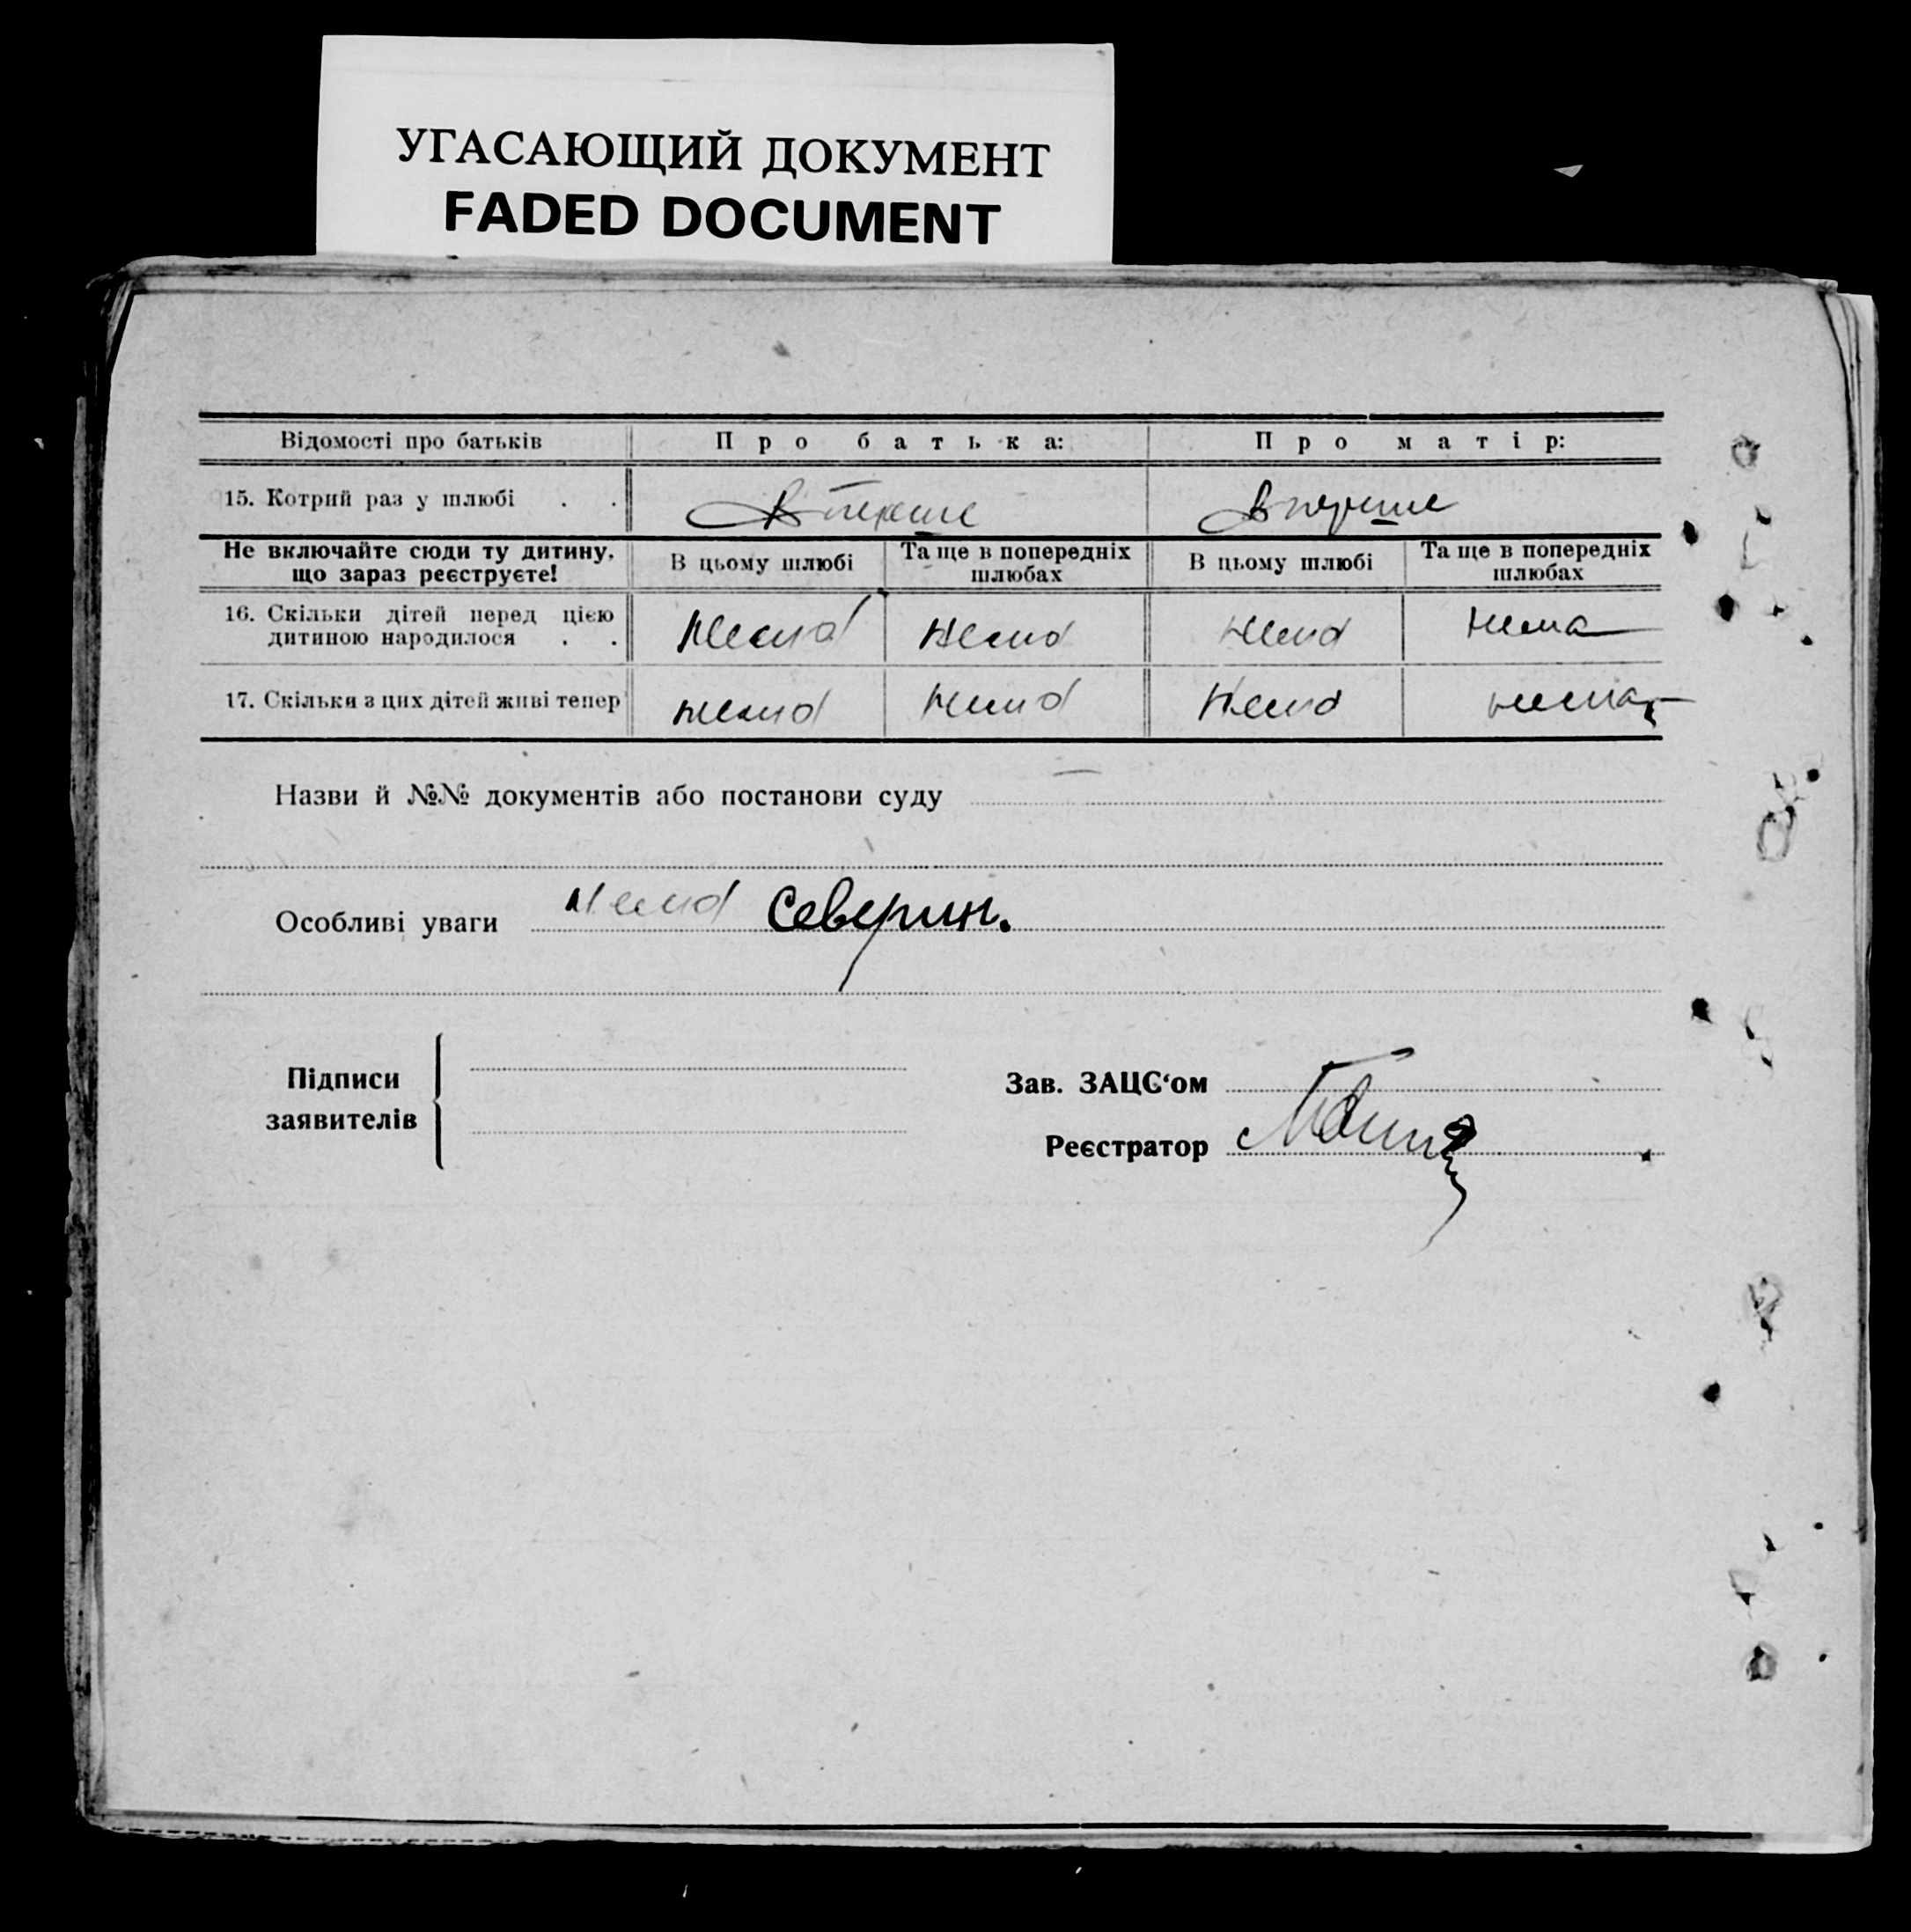 УГАСАЮЩИЙ ДОКУМЕНТ
FADED DOCUMENT
Відомості про батьків Про батька: Про матір:
15. Котрий раз у шлюбі . . Вперше Вперше
Не включайте сюди ту дитину, що зараз реєструєте! В цьому шлюбі Та ще в попередніх шлюбах В цьому шлюбі Та ще в попередніх шлюбах
16. Скільки дітей перед цією
дитиною народилося . . нема нема нема нема
17. Скільки з цих дітей живі тепер нема нема нема нема
Назви й №№ документів або постанови суду —
Особливі уваги нема Северин.
Підписи
заявителів
Зав. ЗАЦС‘ом
Реєстратор